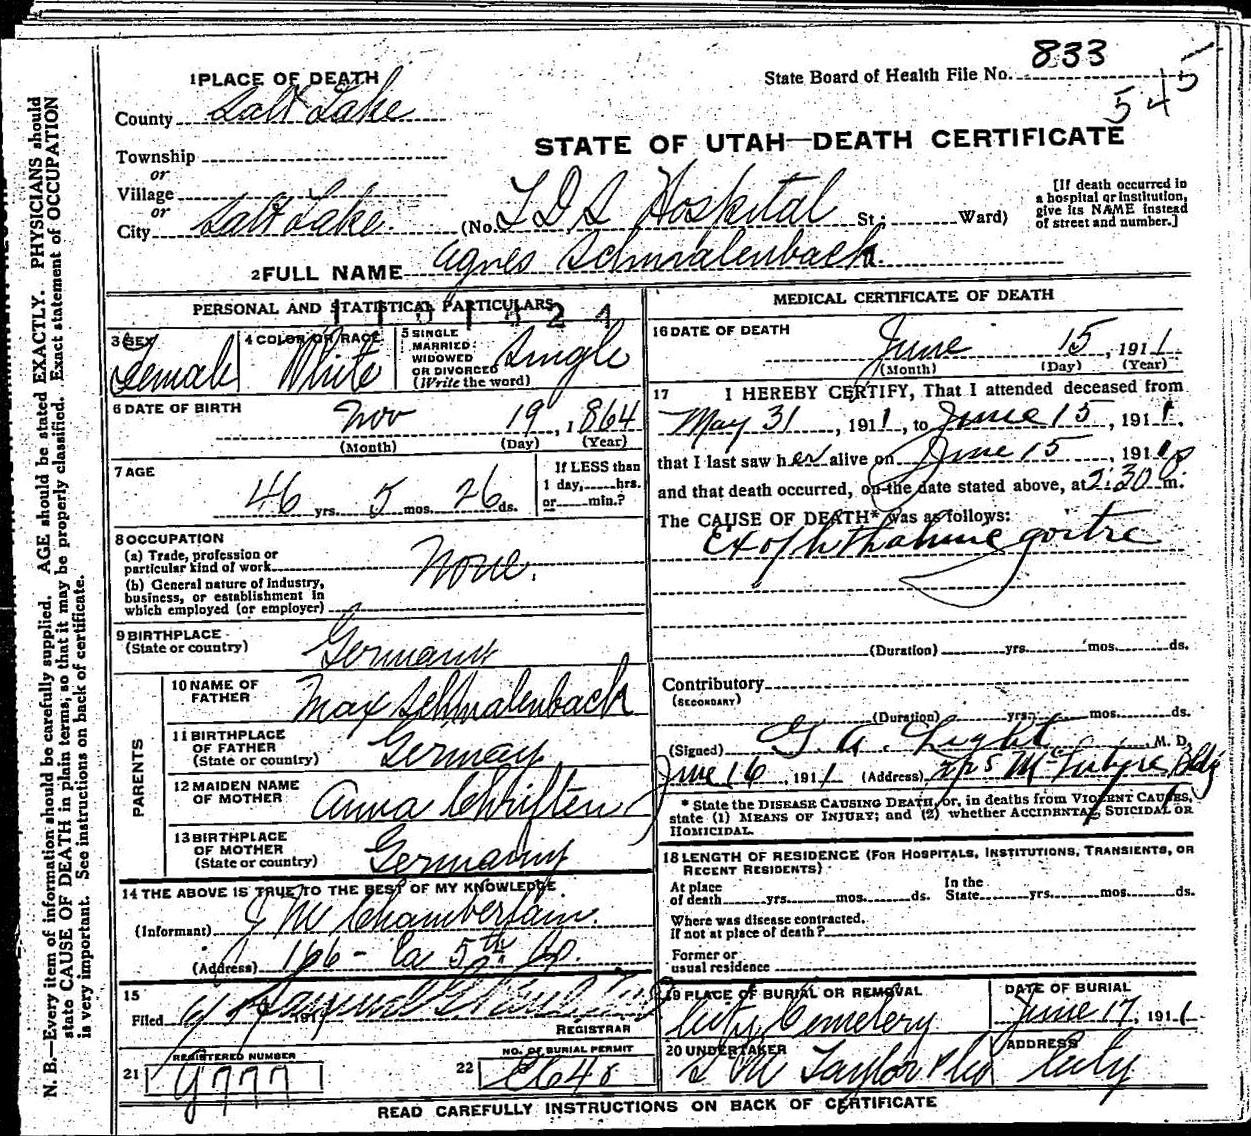 833
State Board of Health File No.
545
1 PLACE OF DEATH
County Salt Lake
STATE OF UTAH—DEATH CERTIFICATE
Township
or
Village
or
City Salt Lake (No. L D S Hospital St; Ward)
[If death occurred in
a hospital or institution,
give its NAME instead
of street and number.]
2 FULL NAME Agnes Schmalenbach
PERSONAL AND STATISTICAL PARTICULARS
3 SEX Female
4 COLOR OR RACE White
5 SINGLE
MARRIED
WIDOWED
OR DIVORCED
(Write the word) Single
6 DATE OF BIRTH
Nov 19, 1864
(Month) (Day) (Year)
7 AGE
46 yrs. 5 mos. 26 ds.
If LESS than
1 day, hrs.
or min.?
8 OCCUPATION
(a) Trade, profession or
particular kind of work None.
(b) General nature of industry,
business, or establishment in
which employed (or employer)
9 BIRTHPLACE
(State or country) Germany
PARENTS
10 NAME OF
FATHER Max Schmalenbach
11 BIRTHPLACE
OF FATHER
(State or country) Germany
12 MAIDEN NAME
OF MOTHER Anna
13 BIRTHPLACE
OF MOTHER
(State or country) Germany
14 THE ABOVE IS TRUE TO THE BEST OF MY KNOWLEDGE
(Informant) J M Chamberlain.
(Address) 166 - 5th
15
Filed
REGISTRAR
REGISTERED NUMBER
21 9777
NO. OF BURIAL PERMIT
22
MEDICAL CERTIFICATE OF DEATH
16 DATE OF DEATH
June 15, 1911
(Month) (Day) (Year)
17 I HEREBY CERTIFY, That I attended deceased from
May 31, 1911, to June 15, 1911,
that I last saw her alive on June 15, 1911
and that death occurred, on the date stated above, at 2:30 p m.
The CAUSE OF DEATH* was as follows:
Exophthalmic goitre
(Duration) yrs. mos. ds.
Contributory
(SECONDARY)
(Duration) yrs. mos. ds.
(Signed) G. A. Light M. D.
June 16, 1911 (Address) McIntyre Bldg
* State the DISEASE CAUSING DEATH, or, in deaths from VIOLENT CAUSES,
state (1) MEANS OF INJURY; and (2) whether ACCIDENTAL, SUICIDAL OR
HOMICIDAL.
18 LENGTH OF RESIDENCE (FOR HOSPITALS, INSTITUTIONS, TRANSIENTS, OR
RECENT RESIDENTS)
At place
of death yrs. mos. ds.
In the
State yrs. mos. ds.
Where was disease contracted.
if not at place of death?
Former or
usual residence
19 PLACE OF BURIAL OR REMOVAL
City Cemetery
DATE OF BURIAL
June 17, 1911
20 UNDERTAKER
S M Taylor & Co
ADDRESS
City
READ CAREFULLY INSTRUCTIONS ON BACK OF CERTIFICATE
N. B.—Every item of information should be carefully supplied. AGE should be stated EXACTLY. PHYSICIANS should
state CAUSE OF DEATH in plain terms, so that it may be properly classified. Exact statement of OCCUPATION
is very important. See instructions on back of certificate.